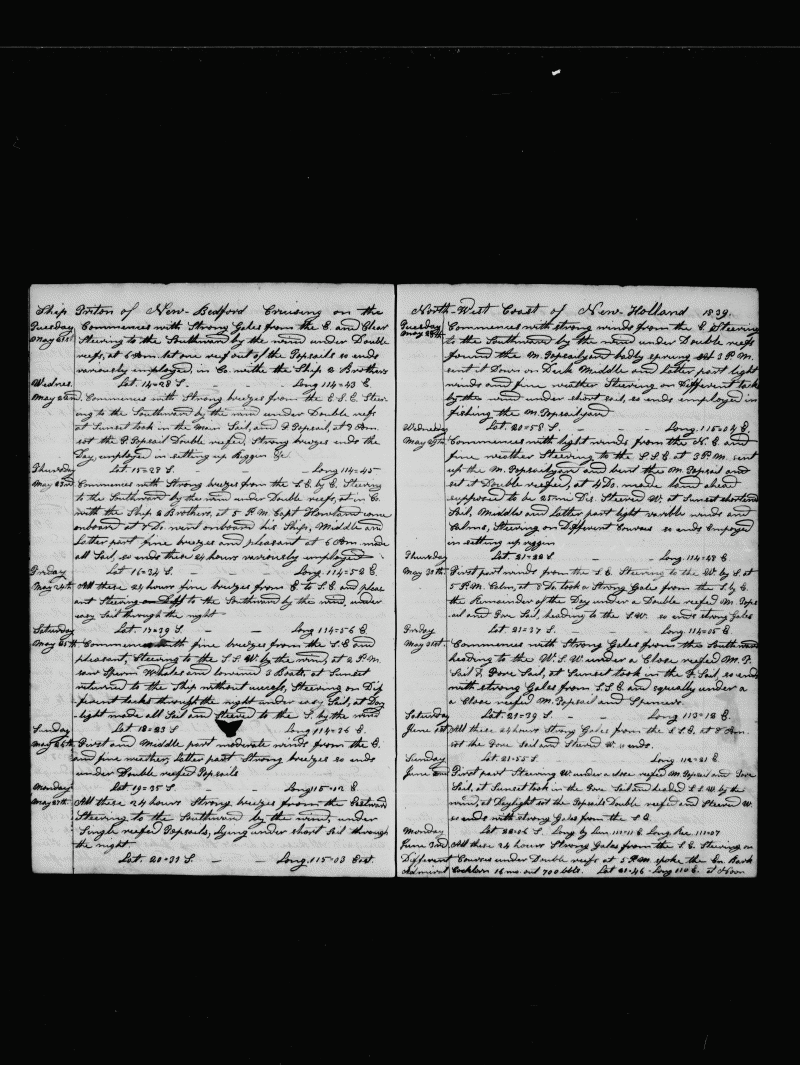 Ship Triton of New-Bedford Cruising on the
Tuesday Commences with Strong Gales from the E. and Clear
May 21st Steering to the Southward by the wind under Double
reefs, at 6 Am. let one reef out of the Topsails so ends
variously employed, in Co. withe the Ship 2 Brothers
Wednes. Lat. 14=28 S. - - Long 114=43 E.
May 22nd Commences with Strong breezes from the E.S.E. Steer-
ing to the Southward by the wind under Double reefs
at Sunset took in the Main Sail, and F. Topsail, at 7 Am.
set the F. Topsail Double reefed, Strong breezes ends the
Day, employed in setting up Riggen &c
Thursday Lat 15=23 S. - - Long 114=45
May 23rd Commences with Strong breezes from the S.E. by E. Steering
to the Southward by the wind under Double reefs, at in Co.
with the Ship 2 Brothers, at 5 P.M. Capt Howland come
onboard at 8 Do. went onboard his Ship, Middle and
Latter part fine breezes and pleasant at 6 Am. made
all Sail, so ends these 24 hours variously employed
Friday Lat 16=34 S. - - Long. 114=52 E
May 24th All these 24 hours fine breezes from E. to S.E. and pleas
ant Steering on Diff to the Southward by the wind, under
easy Sail through the night
Saturday Lat. 17=29 S. - - Long 114=56 E
May 25th Commences with fine breezes from the S.E and
pleasant, Steering to the S.S.W. by the wind, at 2 P.M.
saw Sperm Whales and lowered 3 Boats, at Sunset
returned to the Ship without success, Steering on Dif
ferent tacks through the night under easy Sail, at Day
light made all Sail and Steered to the S. by the wind
Sunday Lat 18=23 S Long 114=36 E.
May 26th First and Middle part moderate winds from the E.
and fine weather, Latter part Strong breezes so ends
under Double reefed Topsails
Monday Lat 19=35 S. - - Long 115=12 E
May 27th All these 24 hours Strong breezes from the Eastward
Steering to the Southward by the wind, under
Single reefed Topsails, lying under Short Sail through
the night
Lat. 20=31 S - - Long. 115=03 East.
North-West Coast of New-Holland 1839.
Tuesday Commences with strong winds from the E. Steering
May 28th to the Southward by the wind under Double reefs
found the M. Topsailyard badly sprung at 3 P.M.
sent it Down on Deck Middle and Latter part light
winds and fine weather Steering on Different tacks
by the wind under short sail, so ends employed in
fishing the M. Topsailyard
Wednesday Lat. 20=58 S. - - Long. 115=04 E.
May 29th Commences with light winds from the N.E. and
fine weather Steering to the S.S.E at 3 P.M. sent
up the M. Topsailyard and bent the M. Topsail and
set it Double reefed, at 4 Do. made land ahead
supposed to be 25 m Dis. Steered W. at Sunset shortened
Sail, Middle and Latter part light varible winds and
Calms, Steering on Different Courses so ends Employed
in setting up riggin
Thursday Lat. 21=22 S - - Long. 114=28 E
May 30th First part winds from the S.E. Steering to the W. by S. at
5 P.M. Calm, at 8 Do. took a Strong Gale from the S. by E.
the Remainder of the Day under a Double reefed M. Tops
ail and Fore Sail, heading to the S.W. so ends strong Gales
Friday Lat. 21=37 S. - - Long. 114=05 E.
May 31st. Commences with Strong Gales from the Southward
heading to the W.S.W. under a Close reefed M. T.
Sail & Fore Sail, at Sunset took in the F. Sail, so ends
with strong Gales from S.S.E. and squally under a
a Close reefed M. Topsail and Spencers.
Saturday Lat 21=39 S. - - Long 113=18 E.
June 1st All these 24 hours Strong Gales from the S.S.E. at 8 Am.
set the Fore Sail and Steered W. so ends.
Sunday Lat. 21=55 S. Long 112=21 E.
June 2nd First part Steering W. under a close reefed M. Topsail and Fore
Sail, at Sunset took in the Fore Sail and headed S.S.W by the
wind, at Daylight set the Topsails Double reefed and Steered W.
so ends with strong Gales from the S.E.
Monday Lat 22=06 S. Long by Lun. 111=11 E. Long Rec. 111=07
June 3rd. All these 24 hours Strong Gales from the S.E. Steering on
Different Courses under Double reefs at 5 P.M. spoke the En. Bark
Admiral Cockburn 16 mo. out 700 bbls. Lat 21=46 - Long 110 E. at Noon